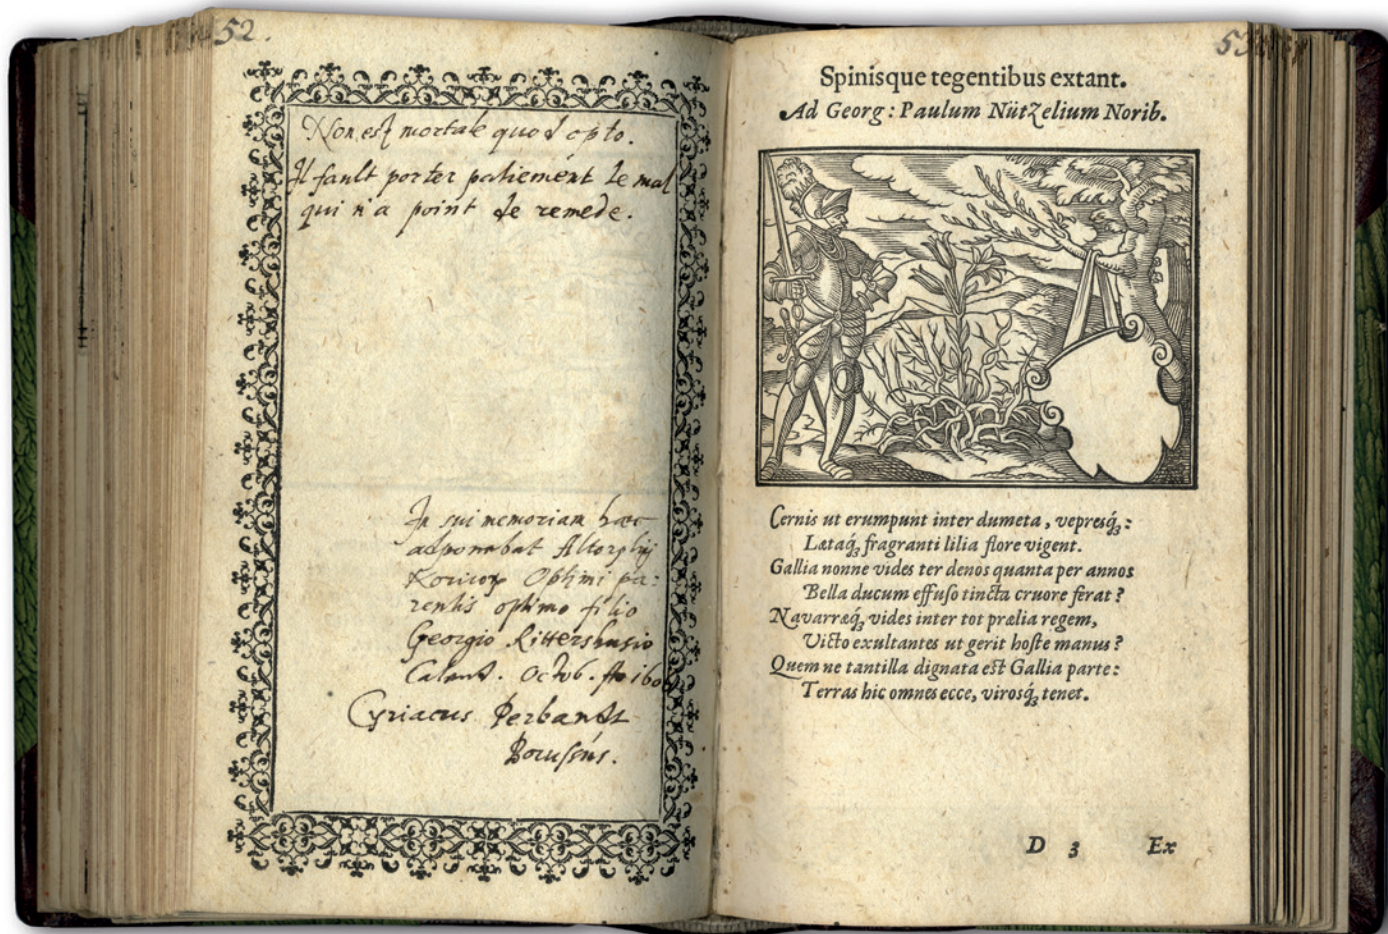 52.
Non est mortale quod opto.
Il fault porter patiemént le mal
qui n'a point de remede.
In sui memoriam haec
adponebat Altorphij
Noricor Optimi pa:
rentis optimo filio
Georgio Rittershusio
Calend. Octob. Ao 160
Cyriacus Perbandt
Borussus.
53
Spinisque tegentibus extant.
Ad Georg: Paulum Nützelium Norib.
Cernis ut erumpunt inter dumeta, vepresq́;:
Lætaq́; fragranti lilia flore vigent.
Gallia nonne vides ter denos quanta per annos
Bella ducum effuso tincta cruore ferat?
Navarræq́; vides inter tot prælia regem,
Victo exultantes ut gerit hoste manus?
Quem ne tantilla dignata est Gallia parte:
Terras hic omnes ecce, virosq́; tenet.
D 3 Ex